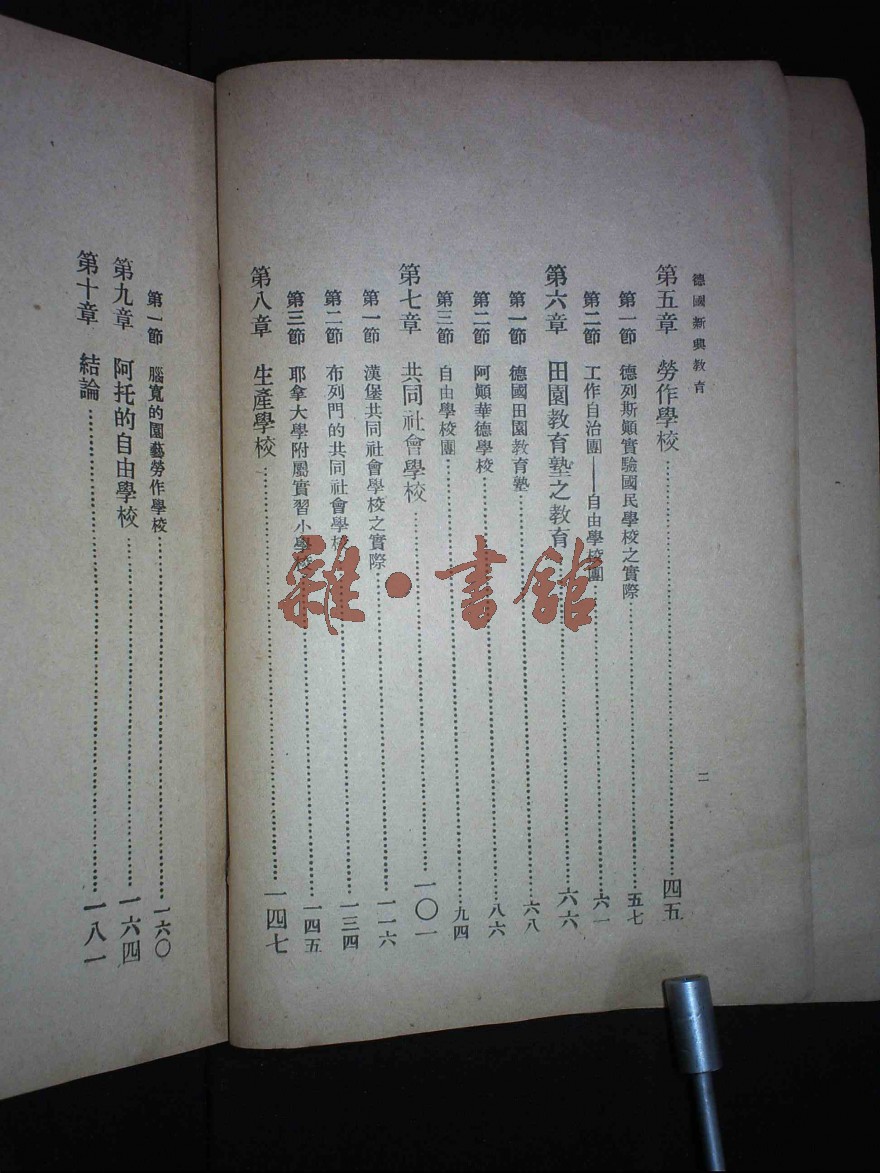 德國新興教育
二
第五章 勞作學校……四五
第一節 德列斯顛實驗國民學校之實際……五七
第二節 工作自治團——自由學校團……六一
第六章 田園教育塾之教育……六六
第一節 德國田園教育塾……六八
第二節 阿顛華德學校……八六
第三節 自由學校團……九四
第七章 共同社會學校……一〇一
第一節 漢堡共同社會學校之實際……一一六
第二節 布列門的共同社會學校……一三四
第三節 耶拿大學附屬實習小學校……一四五
第八章 生產學校……一四七
第一節 腦寬的園藝勞作學校……一六〇
第九章 阿托的自由學校……一六四
第十章 結論……一八一
雜·書館